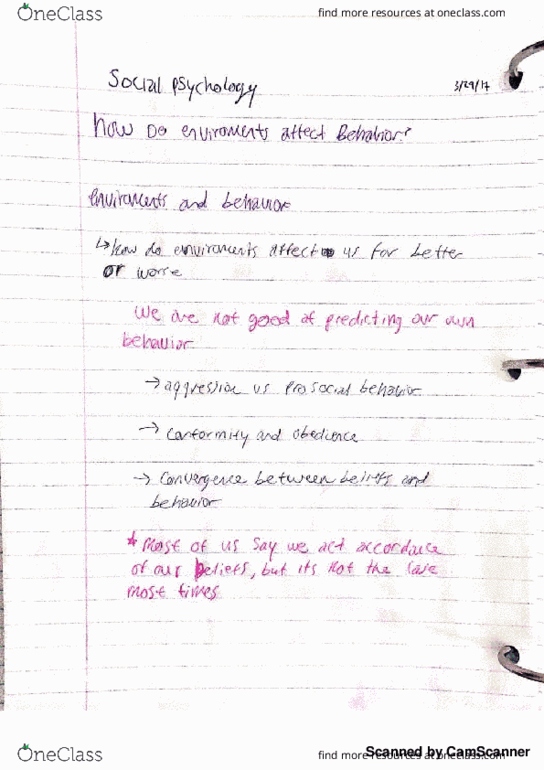 OneClass
find more resources at oneclass.com
Social Psychology
3/29/17
how Do enviroments affect Behavior?
enviroments and behavior
↳ how do enviroments affect us for better
or worse
We are not good at predicting our own
behavior
→ aggressive vs prosocial behavior
→ conformity and obedience
→ convergence between beliefs and
behavior
* Most of us say we act accordance
of our beliefs, but its not the case
most times
OneClass
find more resources at oneclass.com
Scanned by CamScanner